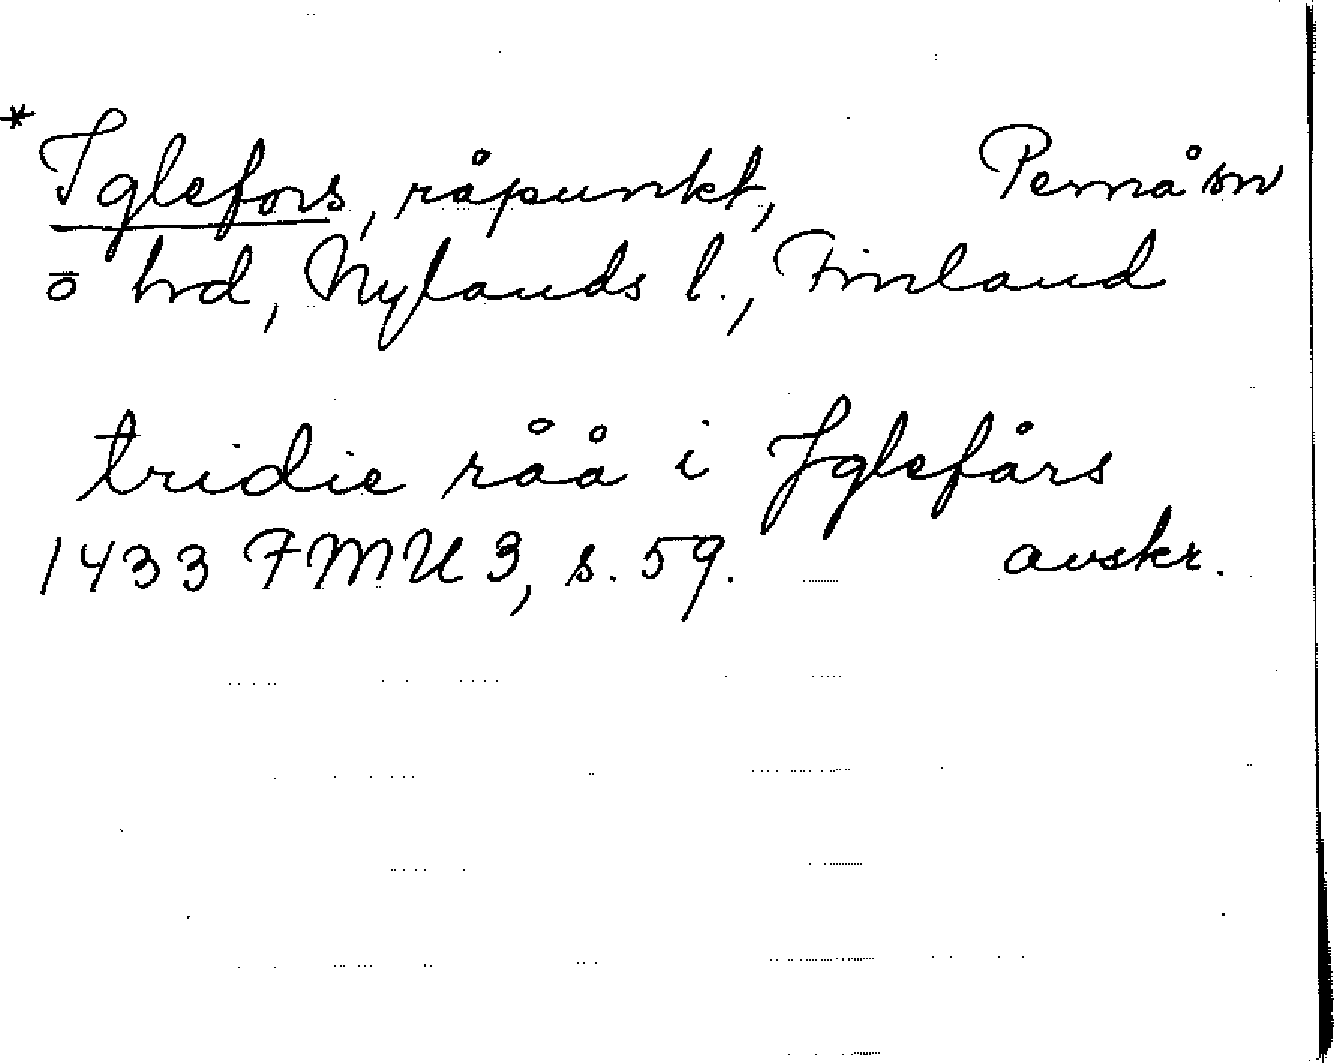 * Iglefors, råpunkt, Pernå sn
o hrd, Nylands l., Finland
tridie råå i Jglefårs
1433 FMU 3, s. 59. avskr.